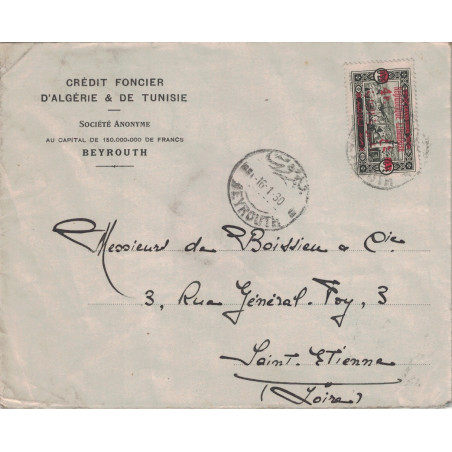 CRÉDIT FONCIER
D'ALGÉRIE & DE TUNISIE
SOCIÉTÉ ANONYME
AU CAPITAL DE 150,000,000 DE FRANCS
BEYROUTH
BEYROUTH
-16.1.30
Messieurs de Boissieu & Cie
3, Rue Général-Foy, 3
Saint-Etienne
(Loire)